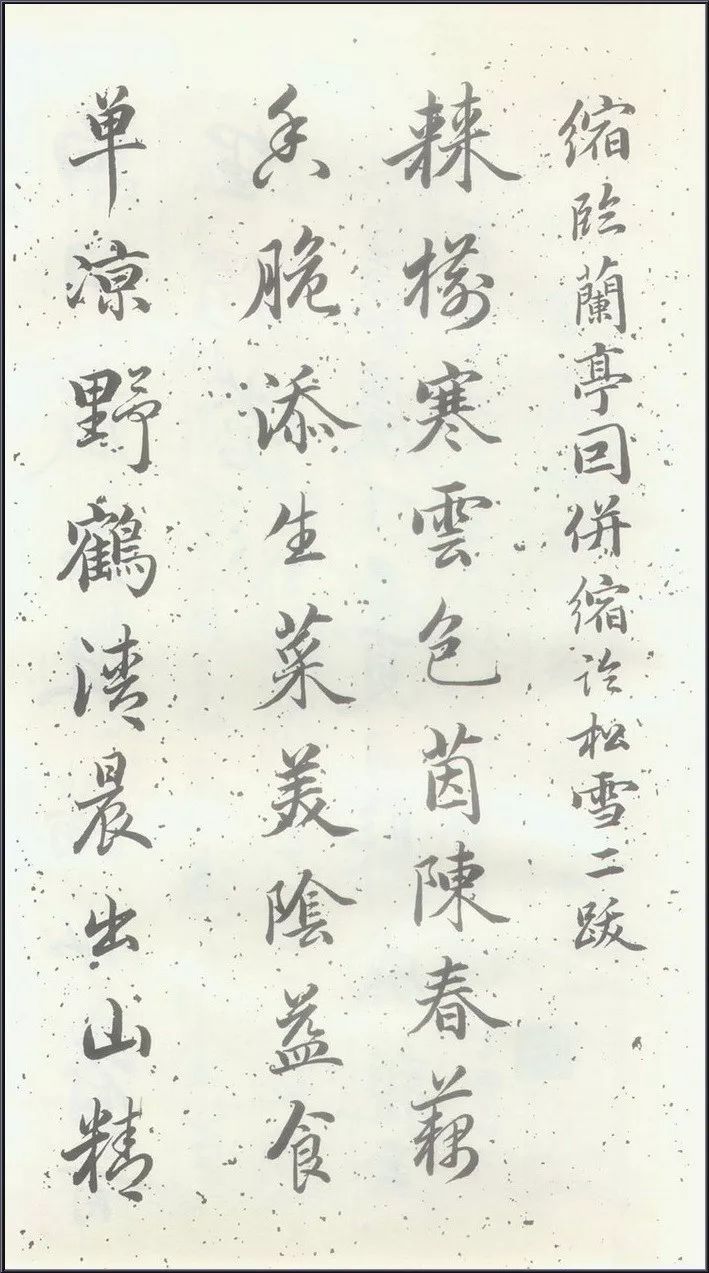 缩臨蘭亭囙併缩松雪二跋
棘樹寒雲色茵陳春藕
香脆添生菜美陰益食
单涼野鶴清晨出山精